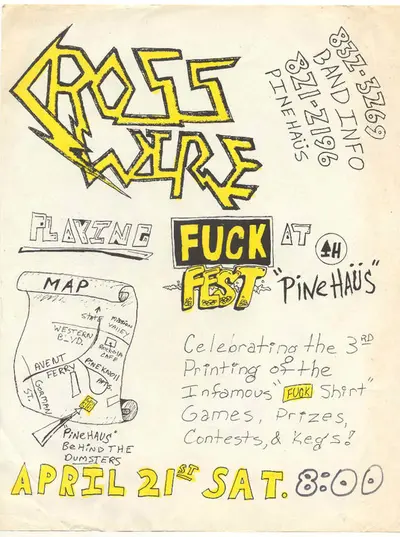 CROSS
WIRE
832-3269
BAND INFO
821-2196
PINEHAÜS
PLAYING
FUCK
FEST
AT
H
"PINEHAÜS"
MAP
STATE
MISSION
VALLEY
WESTERN
BLVD.
AVENT
FERRY
GORMAN
ST.
PINE KNOLL
APT.
PINEHAUS
BEHIND THE
DUMSTERS
Celebrating the 3RD
Printing of the
Infamous "FUCK Shirt"
Games, Prizes,
Contests, & Keg's!
APRIL 21ST SAT. 8:00